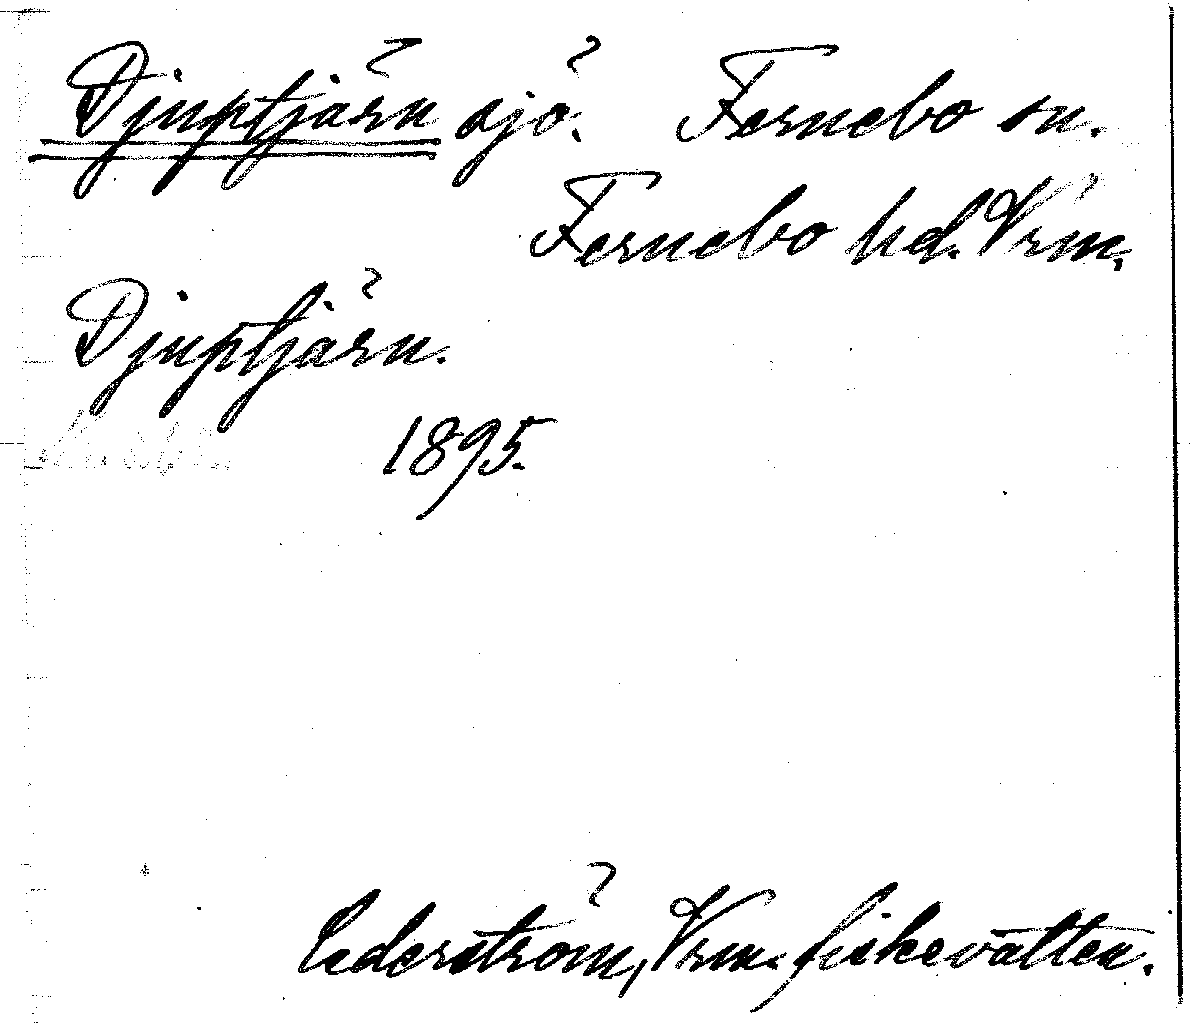 Djuptjärn sjö. Fernebo sn.
Fernebo hd. Vrm.
Djuptjärn.
1895.
Cederström, Vrm. fiskevatten.